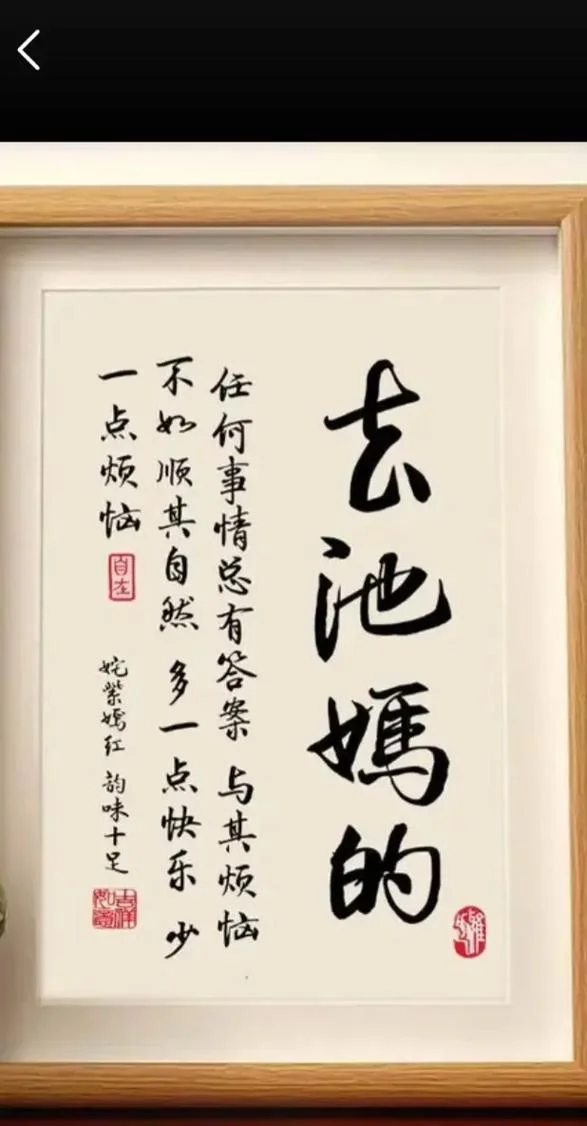 去池媽的
任何事情总有答案 与其烦恼
不如顺其自然 多一点快乐 少
一点烦恼
自在
姹紫嫣红 韵味十足
吉祥如意